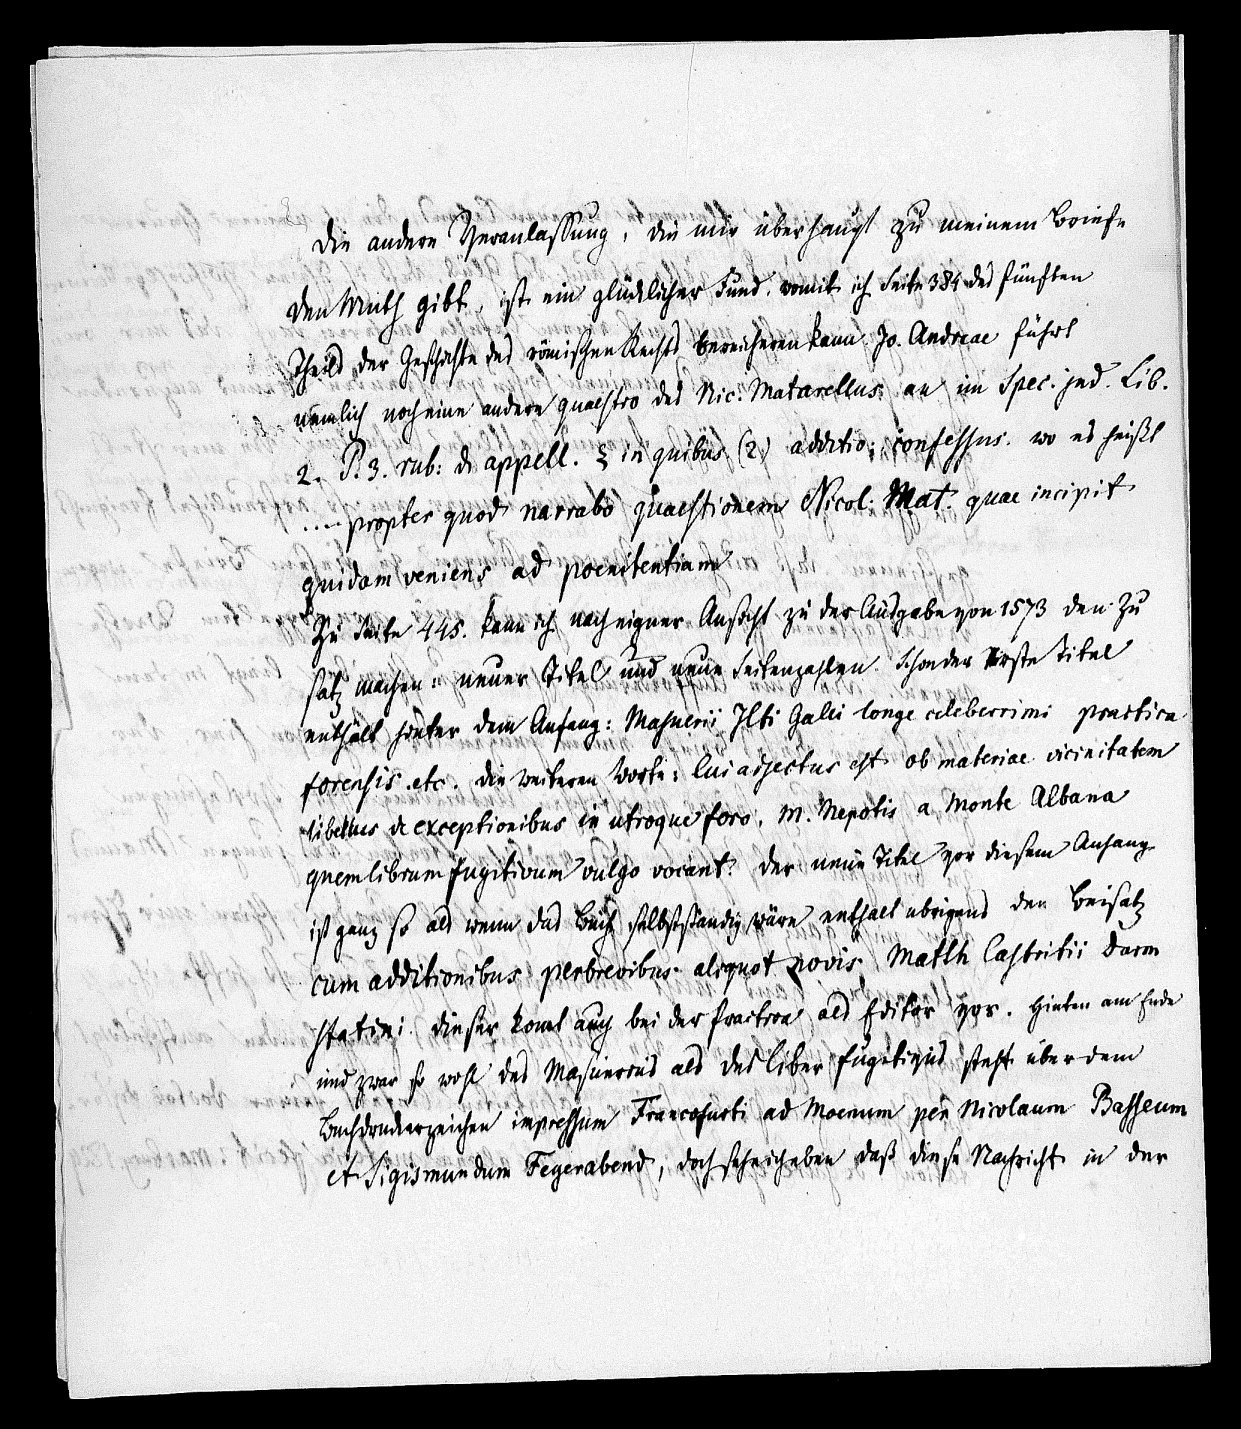 Die andere Veranlassung, die mir überhaupt zu meinem Briefe
den Muth gibt, ist ein glücklicher Fund, womit ich Seite 384 des fünften
Theils der Geschichte des römischen Rechts bereicheren kann. Jo. Andreae führt
nämlich noch eine andere quaestio des Nic: Matarellus an im Spec. jud. Lib.
2. P. 3. rub: de appell. § in quibus (2) additio: confessus. wo es heißt
.... propter quod narrabo quaestionem Nicol: Mat. quae incipit
quidam veniens ad poenitentiam
Zu Seite 445. kann ich nach eigner Ansicht zu der Ausgabe von 1573 den Zu
satz machen: neuer Titel und neue Seitenzahlen. Schon der erste Titel
enthält hinter dem Anfang: Masuerii Jcti Galli longe celeberrimi practica
forensis .etc. die weiteren Worte: cui adjectus est ob materiae vicinitatem
libellus de exceptionibus in utroque foro, M. Nepotis a Monte Albano
quem librum fugitivum vulgo vocant. Der neue Titel vor diesem Anhang
ist ganz so als wenn das Buch selbstständig wäre enthält übrigens den Beisatz
cum additionibus perbrevibus aliquot novis Matth Castritii Darm
statini. Dieser komt auch bei der Practica als Editor vor. Hinten am Ende
und zwar so wohl des Masuerius als des liber fugitivus steht über dem
Buchdruckerzeichen impressum Francofurti ad Moenum per Nicolaum Basseum
et Sigismundum Feyerabend, doch sehe ich eben daß diese Nachricht in der